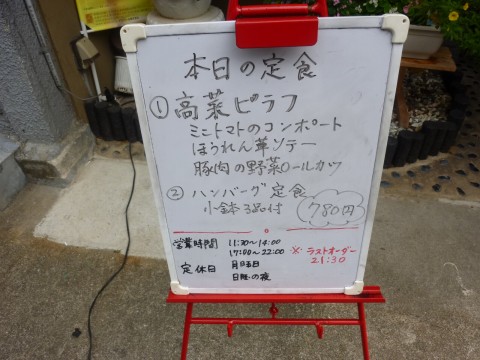 本日の定食
① 高菜ピラフ
ミニトマトのコンポート
ほうれん草ソテー
豚肉の野菜ロールカツ
② ハンバーグ定食
小鉢3品付 780円
営業時間 11:30〜14:00
17:00〜22:00
※ラストオーダー
21:30
定休日
日 の夜